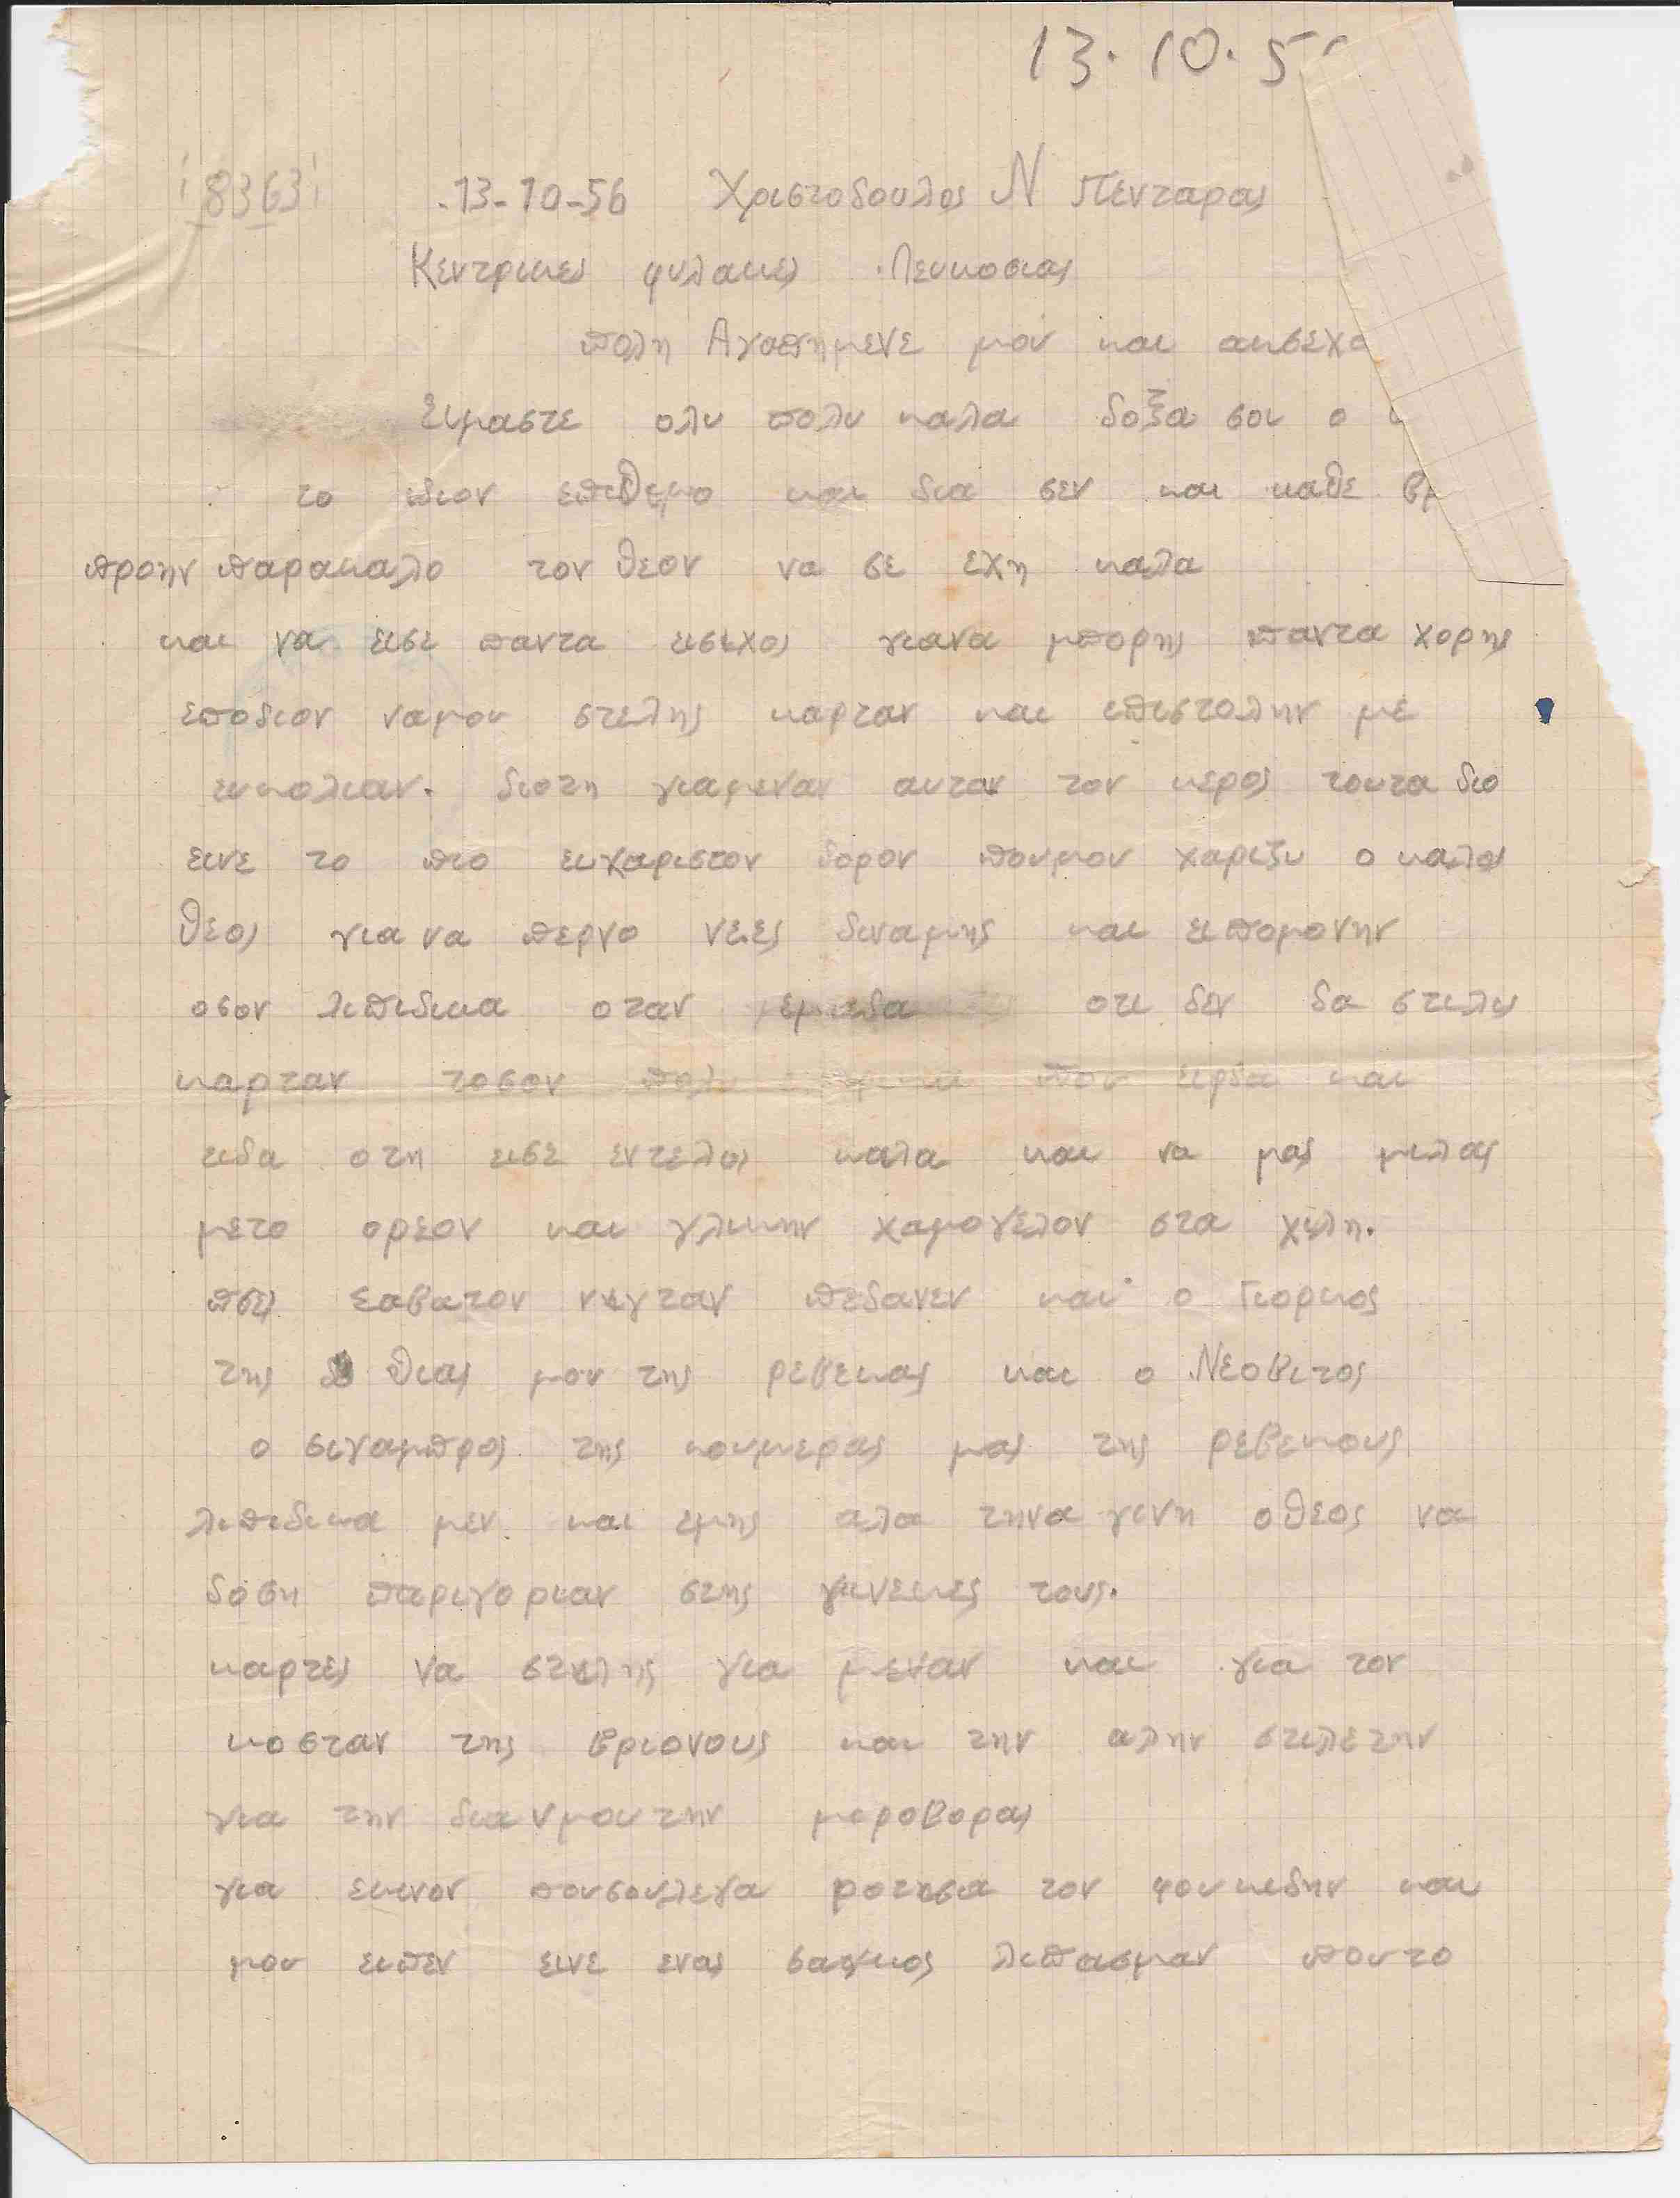 13.10.5
8363 .13-10-56 Χριστοδουλος Ν Πενταρας
Κεντρικες φυλακες .Λευκοσιας
πολη Αγαπημενε μου και ακσεχα
Ειμαστε ολυ πολυ καλα δοξα σοι ο
το ιδιον επιθεμο και δια σεν και καθε βρ
προην παρακαλο τον θεον να σε εχη καλα
και να εισε παντα εισιχος γιανα μπορης παντα χορης
εποδιον ναμου στελης καρταν και επιστολην με
εικολιαν. διοτη γιαμεναν αυταν τον κερος τουτα διο
εινε το πιο ευχαριστον δορον πουμου χαριζυ ο καλος
θεος για να περνο νειες διναμης και ειπομονην
οσον λιπιδικα οταν εμαδα οτι δεν δα στιλις
καρταν τοσον πολυ που ειρδα και
ειδα οτη εισε εντελος καλα και να μας μιλας
μετο ορεον και γλικην χαμογελον στα χιλη.
πσες Σαβατον νιχταν πεδανεν και ο Γιορκος
της θιας μου της ρεβεκας και ο Νεοβιτος
ο σιγαμπρος της κουμερας μας της ρεβεκους
λιπιδικα μεν και εμης αλα τηνα γινη ο θεος να
δοση παριγοριαν στης γινεκες τους.
καρτες να στιλης για μεναν και για τον
κοσταν της βριονους και την αλην στιλετην
για την διανμου την μεροβορας
για εκινον πουσουλεγα ροτισα τον φουκιδην και
μου ειπεν εινε ενας σακκος λιπασμαν πουτο